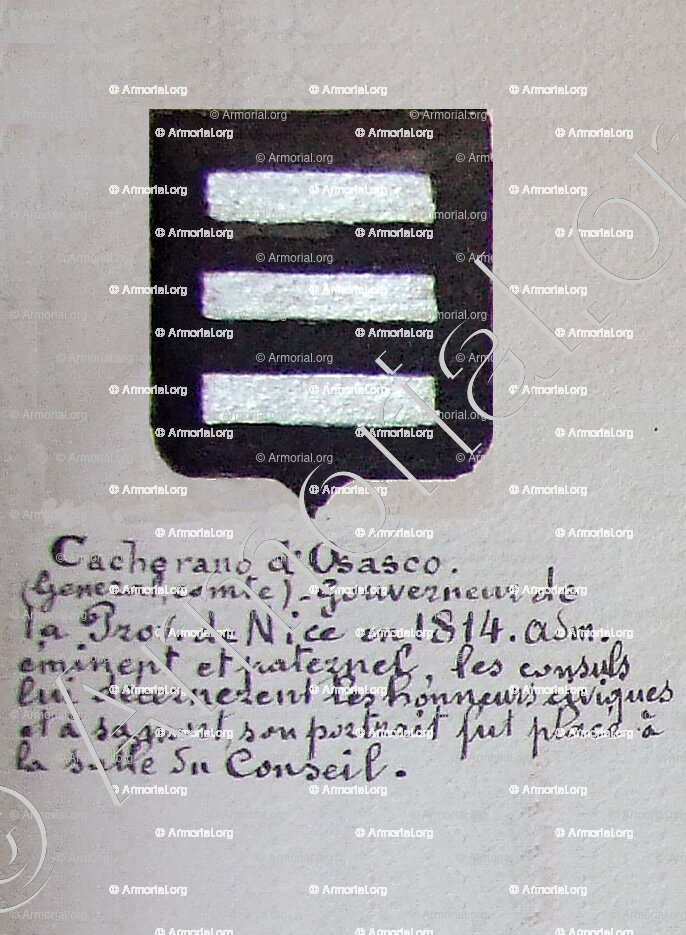 Cacherano d'Osasco.
(General, comte) - Gouverneur de
la Prov. de Nice en 1814. Adm.
éminent et paternel, les consuls
lui décernerent les honneurs civiques
et à sa mort, son portrait fut placé à
la salle du Conseil.
© Armorial.org